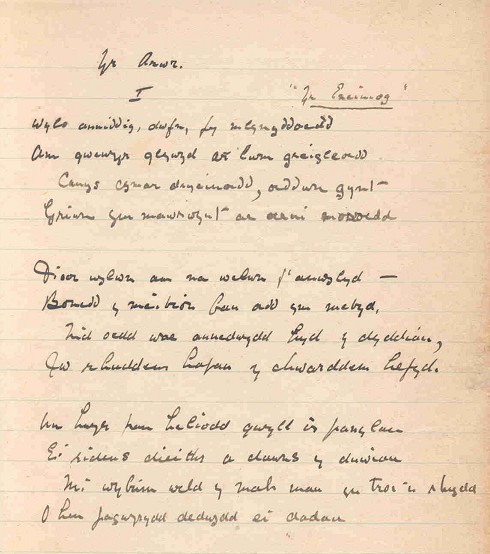 Yr Arwr.
I
"Yr Eneiniog"
Wylo anniddig, dwfn, fy mlynyddoedd
A'm gwewyr glywyd ar lwm greigleoedd
Canys drycinoedd, oeddwn gynt
Griwn ym mawrwynt ac oerni moroedd
Dioer wylwn am na welwn f'anwylyd —
Bonedd y meibion ban oedd ym mebyd,
Nid oedd wae annedwydd hyd y dyddiau,
I'w rhuddem hafau y chwarddem hefyd.
Un hwyr pan heliodd gwyll i'r panylau
Ei sidens dieithr a dawns y duwiau
Mi wybum weld y mab mau yn troi'n rhydd
O hen fagwyrydd dedwydd ei dadau